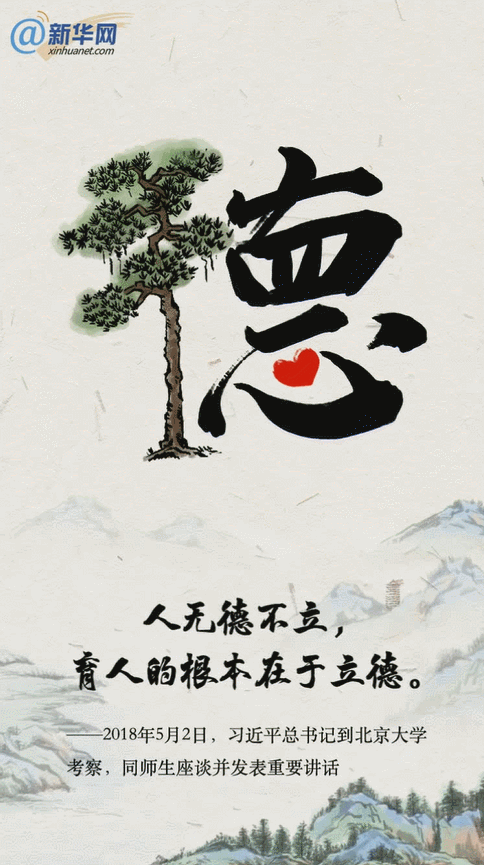 @新华网
xinhuanet.com
德
人无德不立，
育人的根本在于立德。
——2018年5月2日，习近平总书记到北京大学
考察，同师生座谈并发表重要讲话